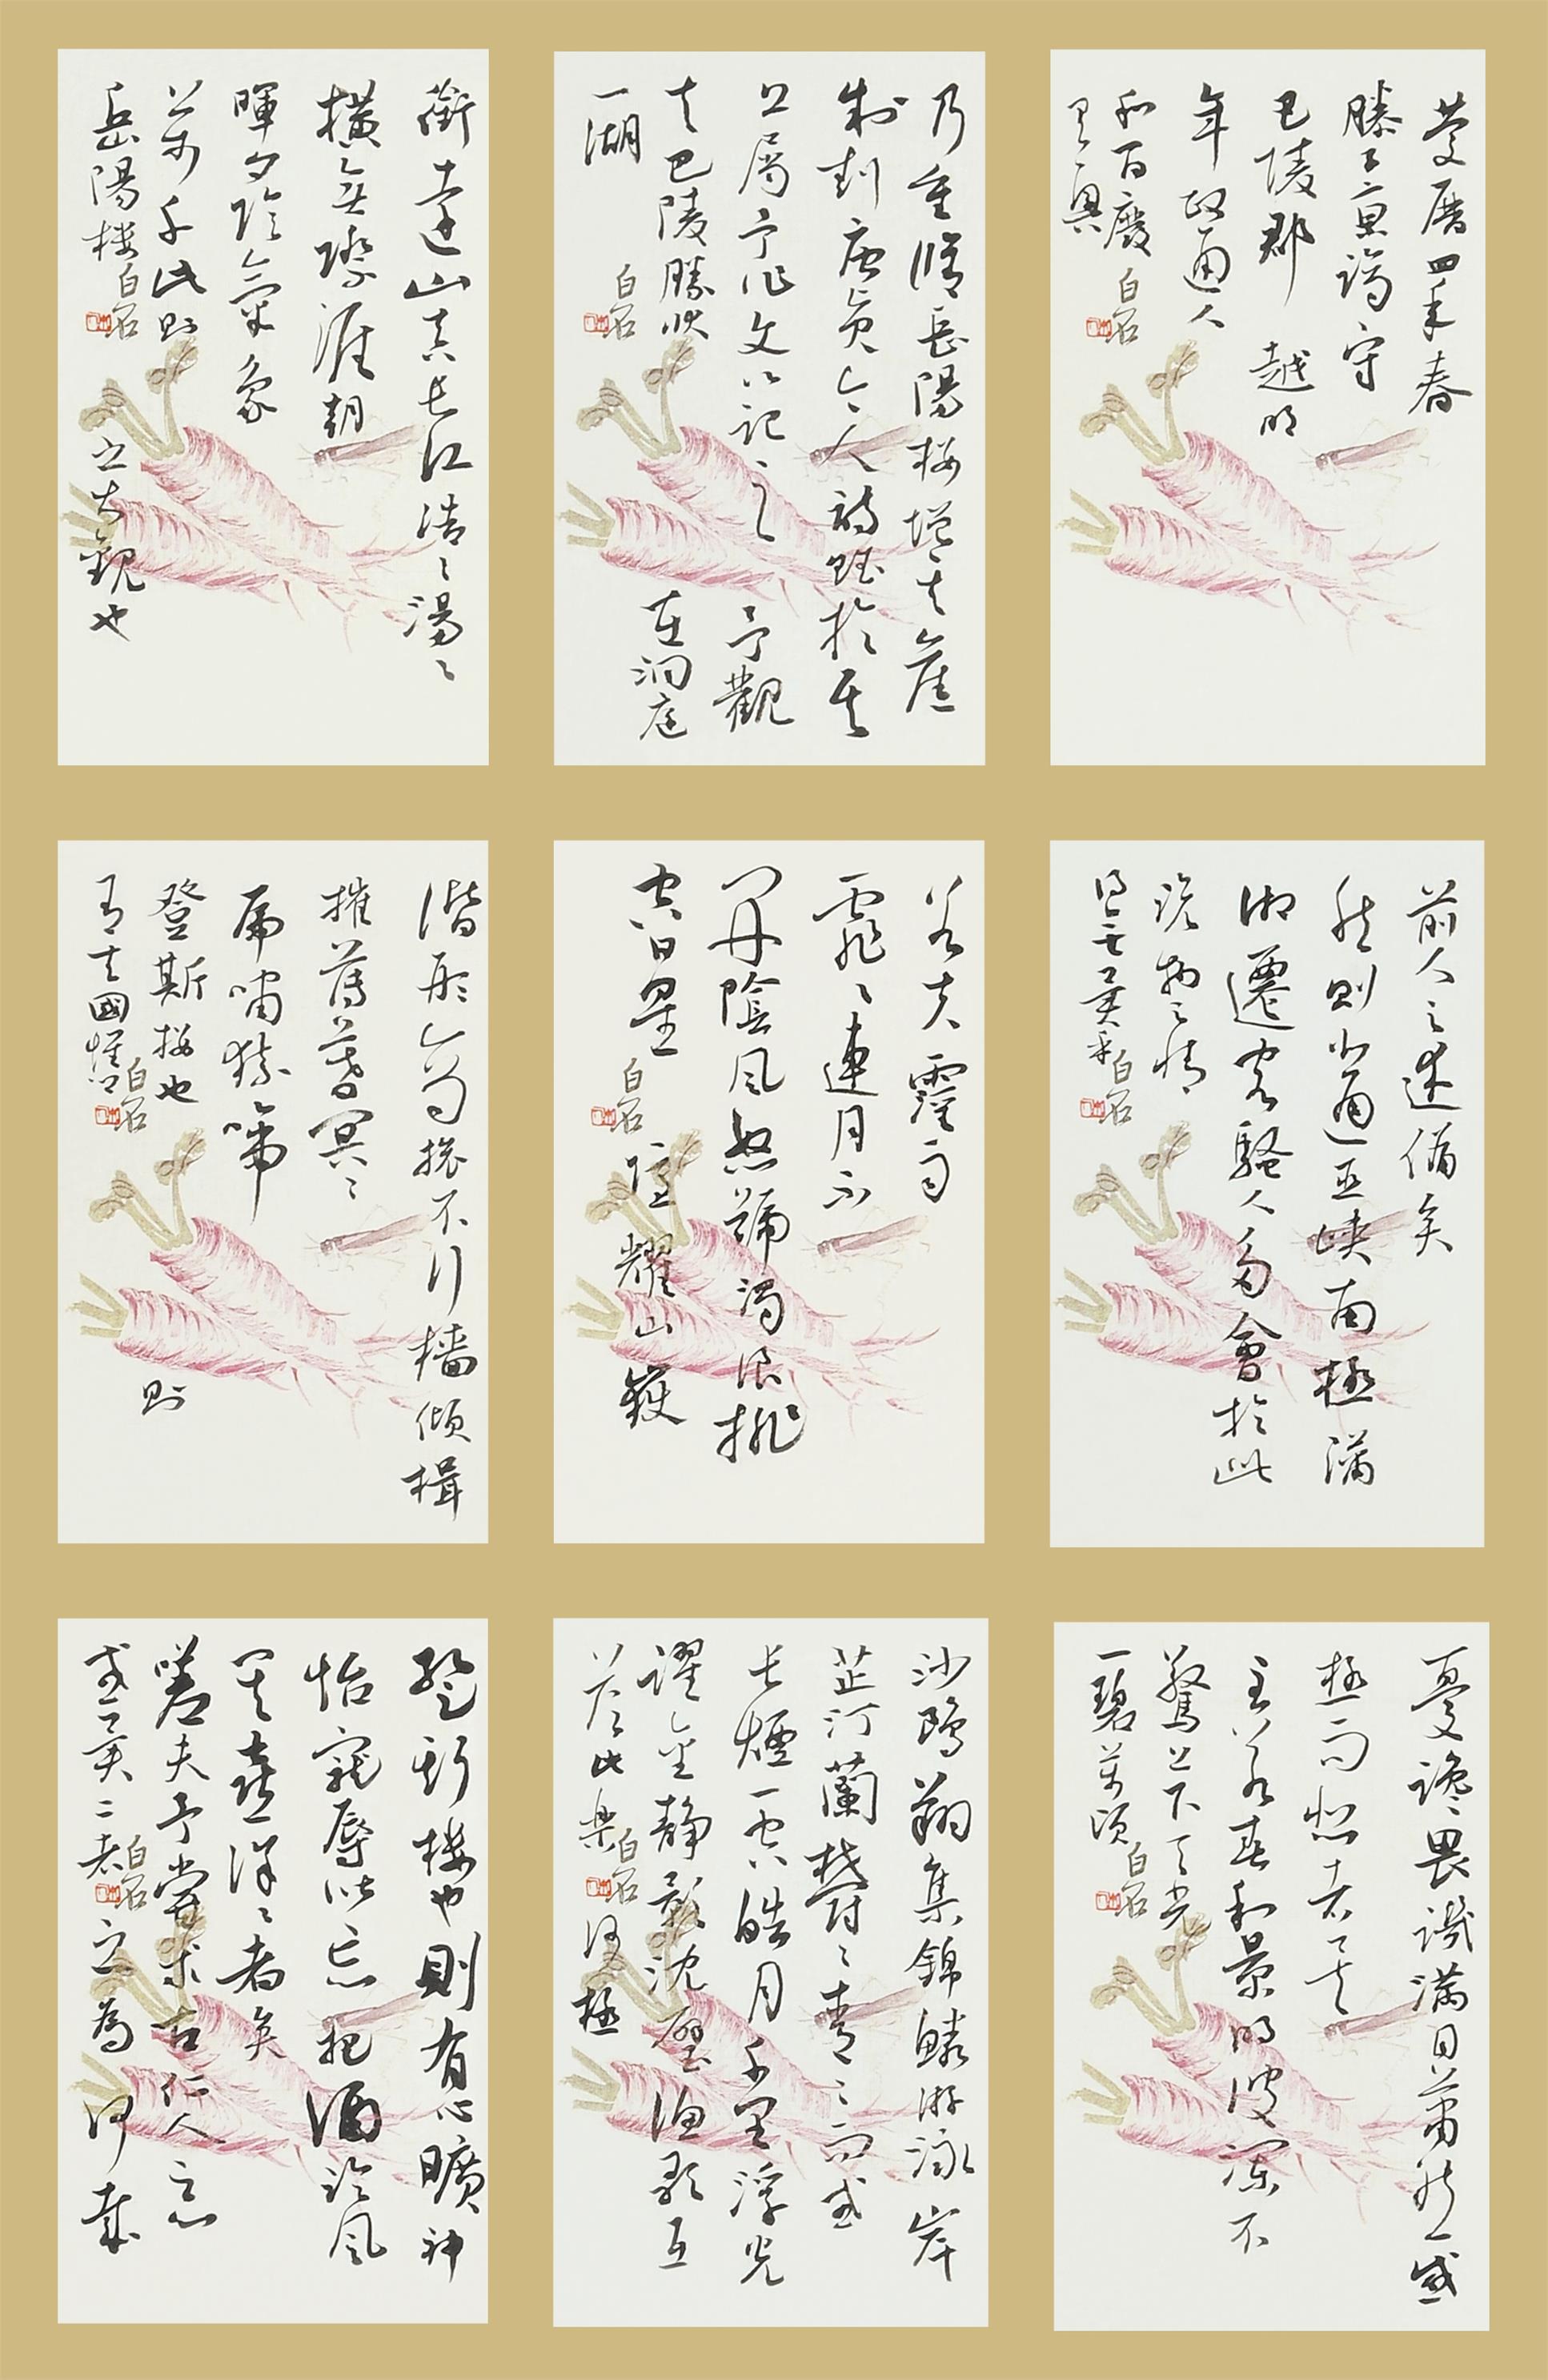 慶曆四年春
滕子京謫守
巴陵郡越明
年政通人
和百廢
具興
白石
乃重修岳陽樓增其舊
制刻唐賢今人詩賦於其
上屬予作文以記之予觀
夫巴陵勝狀在洞庭
一湖
白石
銜遠山吞長江浩々湯々
橫無際涯朝
暉夕陰氣象
萬千此則
岳陽樓之大觀也
白石
前人之述備矣
然則北通巫峽南極瀟
湘遷客騷人多會於此
覽物之情
得無異乎
白石
若夫霪雨
霏々連月不
開陰風怒號濁浪排
空日星隱耀山嶽
白石
潛形商旅不行檣傾楫
摧薄暮冥々
虎嘯猿啼
登斯樓也則
有去國懷鄉
白石
憂讒畏譏滿目蕭然感
極而悲者矣
至若春和景明波瀾不
驚上下天光
一碧萬頃
白石
沙鷗翔集錦鱗游泳岸
芷汀蘭鬱々青々而或
長煙一空皓月千里浮光
躍金靜影沈璧漁歌互
答此樂何極
白石
登斯樓也則有心曠神
怡寵辱偕忘把酒臨風
其喜洋々者矣
嗟夫予嘗求古仁人之心
或異二者之為何哉
白石